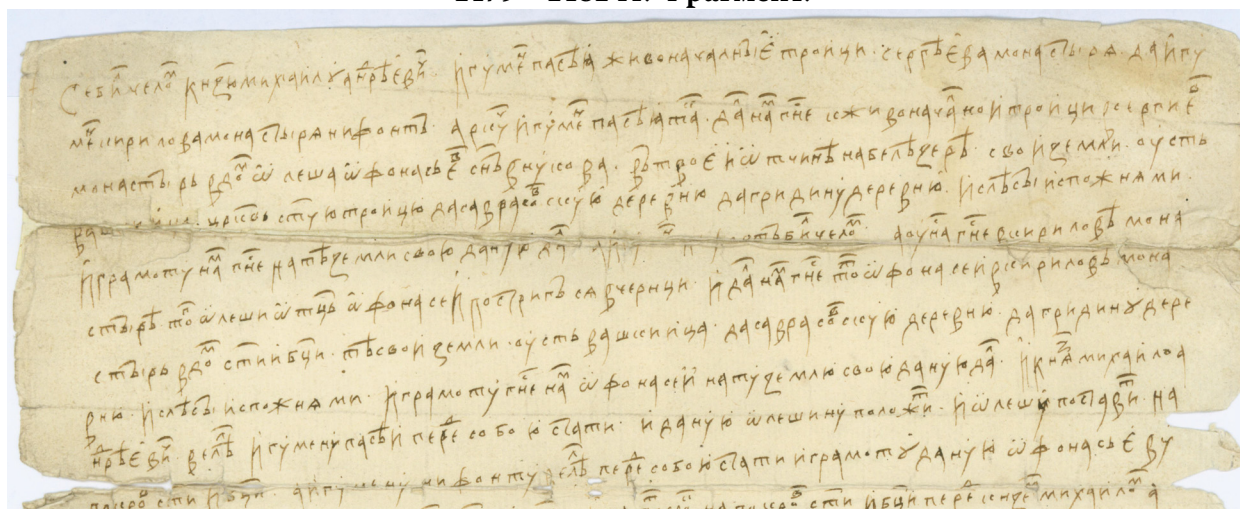 Се би челом кнѧзю михаилу андрѣевич. игумен паисѣа живоначалныѧ троици. сергѣева монастырѧ. да игу
мен кирилова монастырѧ нифонтъ. а рку игумен паисѣа та. дал нам гне к живоначалнои троици в сергиев
монастырь в дом ѡлеша ѡфонасьев снъ внукова. в твоеи ѡтчинѣ на бѣлѣозерѣ. свои земли. оусть
црквь стую троицю да саврасовскую деревню да гридину деревню. и с лѣсы и с пожнѧми.
и грамоту нам гне на тѣ земли свою даную дал бил челом а оу нас гне в кириловѣ мона
стырѣ того ѡлеши ѡтць ѡфонасеи постриглъ сѧ в черньци. и дал нам гне тот ѡфонасеи в кириловъ мона
стырь в дом стии бци. тѣ свои земли. оусть вашкиица. да савраовскую деревню. да гридину дере
вню. и с лѣсы и с пожнѧми. и грамоту гне нам ѡфонасеи на ту землю свою даную дал. и кнѧз михаило а
ндрѣевич велѣл игумену паисѣи перед собою стати. и даную ѡлешину положити. и ѡлешу поставити. на
покров стии бци. а игумену нифонту велѣл перед собою стати и грамоту даную ѡфонасьеву
на покров стии бци перед кнземь михаилом а